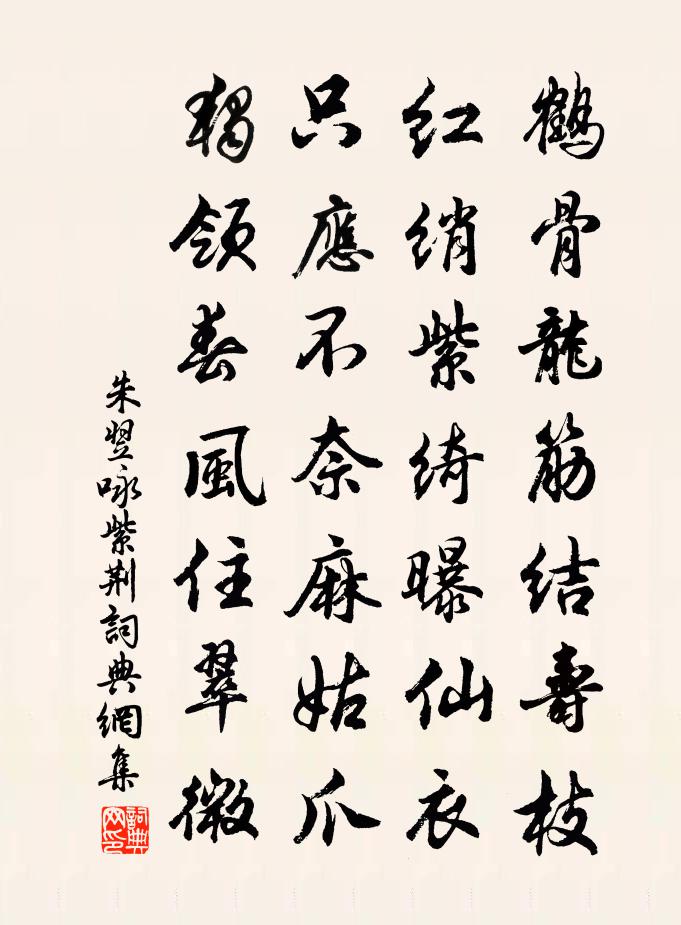 鶴骨龍筋結壽枝
紅綃紫綺曝仙衣
只應不奈麻姑爪
獨領春風住翠微
朱翌咏紫荆詞典網集
詞典网印